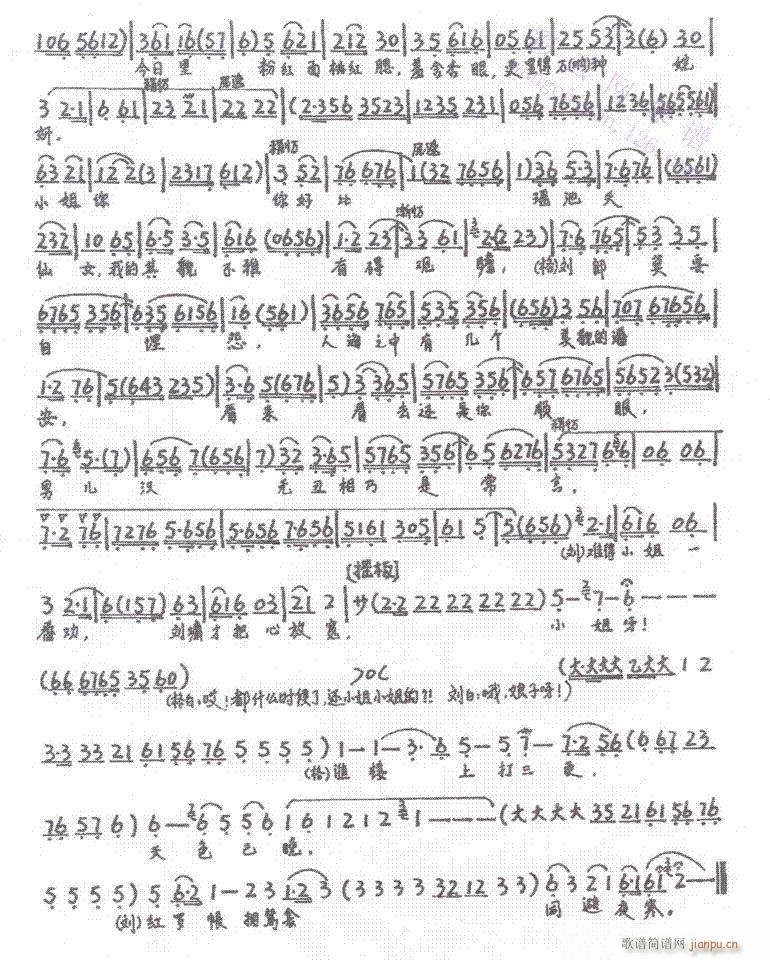 106 5612) | 361 16(57 | 6) 5 621 | 212 30 | 35 616 | 05 61 | 25 53 | 3(6) 30 |
今日里 粉红面桃红腮, 羞含杏眼, 更显得万(哟)种 娆
3 2·1 | 6 61 | 23 21 | 22 22 | (2·356 3523 | 1235 231 | 056 7656 | 1236 | 565561)
妍.
63 21 | 122(3 | 2317 612) | 3 52 | 76 676 | 1(32 7656 | 1)36 5·3 | 7·676 | (6561)
小姐你 你好比 瑶池天
232 | 10 65 | 6·5 3·5 | 616 (0656) | 1·2 23 | 33 61 | 2(2 23) | 7·6 765 | 53 35 |
仙女, 我的其貌不雅 有碍观瞻, (梧)刘郎莫要
6765 356 | 635 6156 | 16 (561) | 3656 765 | 535 356 | (656) 3 56 | 707 67656 |
自埋怨, 人海之中有几个 美貌的潘
1·2 76 | 5(643 235) | 3·6 5(676 | 5) 3 365 | 5765 356 | 657 6765 | 5652 3(532)
安, 看来看去还是你顺眼,
7·6 5·(7) | 656 7(656 | 7) 32 3·65 | 5765 356 | 65 6276 | 5327 66 | 06 06 |
男儿汉 无丑相乃是常言.
7·2 76 | 7276 5·656 | 5·656 7·656 | 5161 305 | 61 5 | 5(656) 2·1 | 616 06 |
(刘)难得小姐一
[摇板]
3 2·1 | 6(157) 63 | 616 03 | 21 2 | サ (2·2 22 22 22 22) 5— 7— 6— — — —
番劝, 刘墉才把心放宽. 小姐呀!
(66 6765 35 60) (大·大大大 乙大大 1 2
(梧白:哎!都什么时候了,还小姐小姐的?! 刘白:哦,娘子呀!)
3·3 33 21 61 56 76 5 5 5 5) 1— 1— 3· 6 5— 5 7— 7·2 56 (6 67 23
(梧)谯楼 上打三更,
76 57 6) 6— 6 5 5 6 1 6 1 2 1 2 1 — — — (大大大大 35 21 61 56 76
天色已晚,
5 5 5 5) 5 6·2 1— 2 3 1·2 3 (3 3 3 3 32 12 3 3) 6 3 2 1 6·1 61 2—
(刘)红罗帐鸳衾 同避夜寒。
歌谱简谱网 jianpu.cn